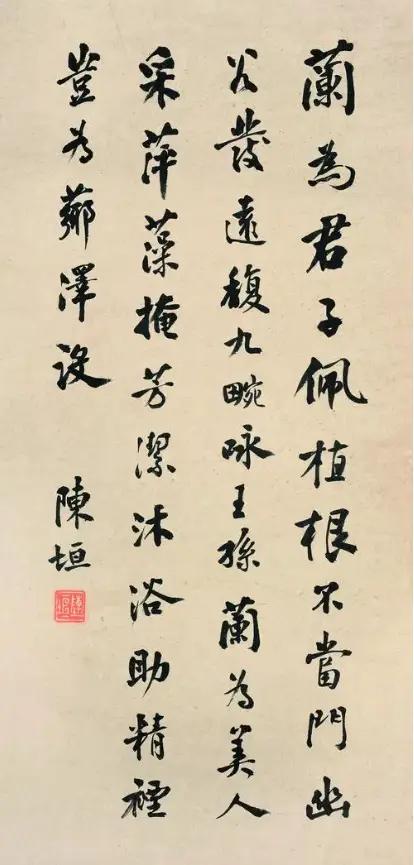 蘭為君子佩植根不當門幽
谷發遠馥九畹咏王孫蘭為美人
采萍藻掩芳潔沐浴助精禋
豈為薌澤設
陳垣
陳垣